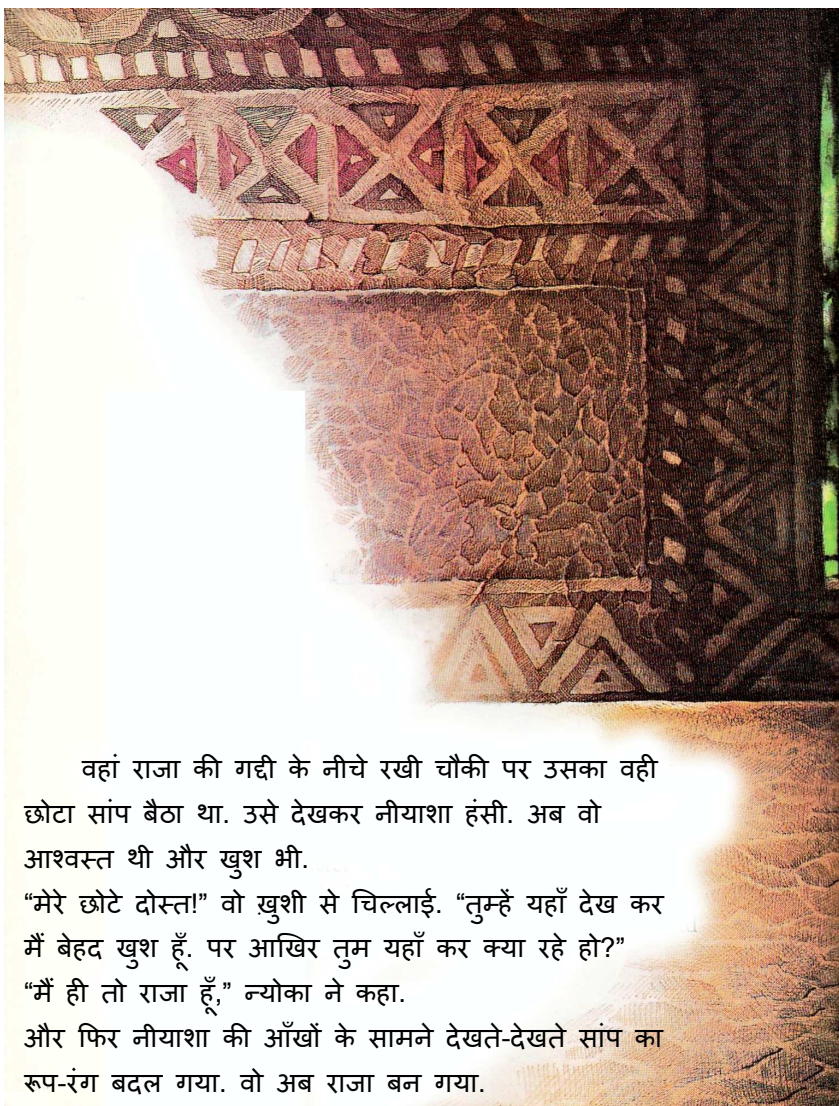 वहां राजा की गद्दी के नीचे रखी चौकी पर उसका वही
छोटा सांप बैठा था. उसे देखकर नीयाशा हंसी. अब वो
आश्वस्त थी और खुश भी.
“मेरे छोटे दोस्त!” वो ख़ुशी से चिल्लाई. “तुम्हें यहाँ देख कर
मैं बेहद खुश हूँ. पर आखिर तुम यहाँ कर क्या रहे हो?”
“मैं ही तो राजा हूँ,” न्योका ने कहा.
और फिर नीयाशा की आँखों के सामने देखते-देखते सांप का
रूप-रंग बदल गया. वो अब राजा बन गया.